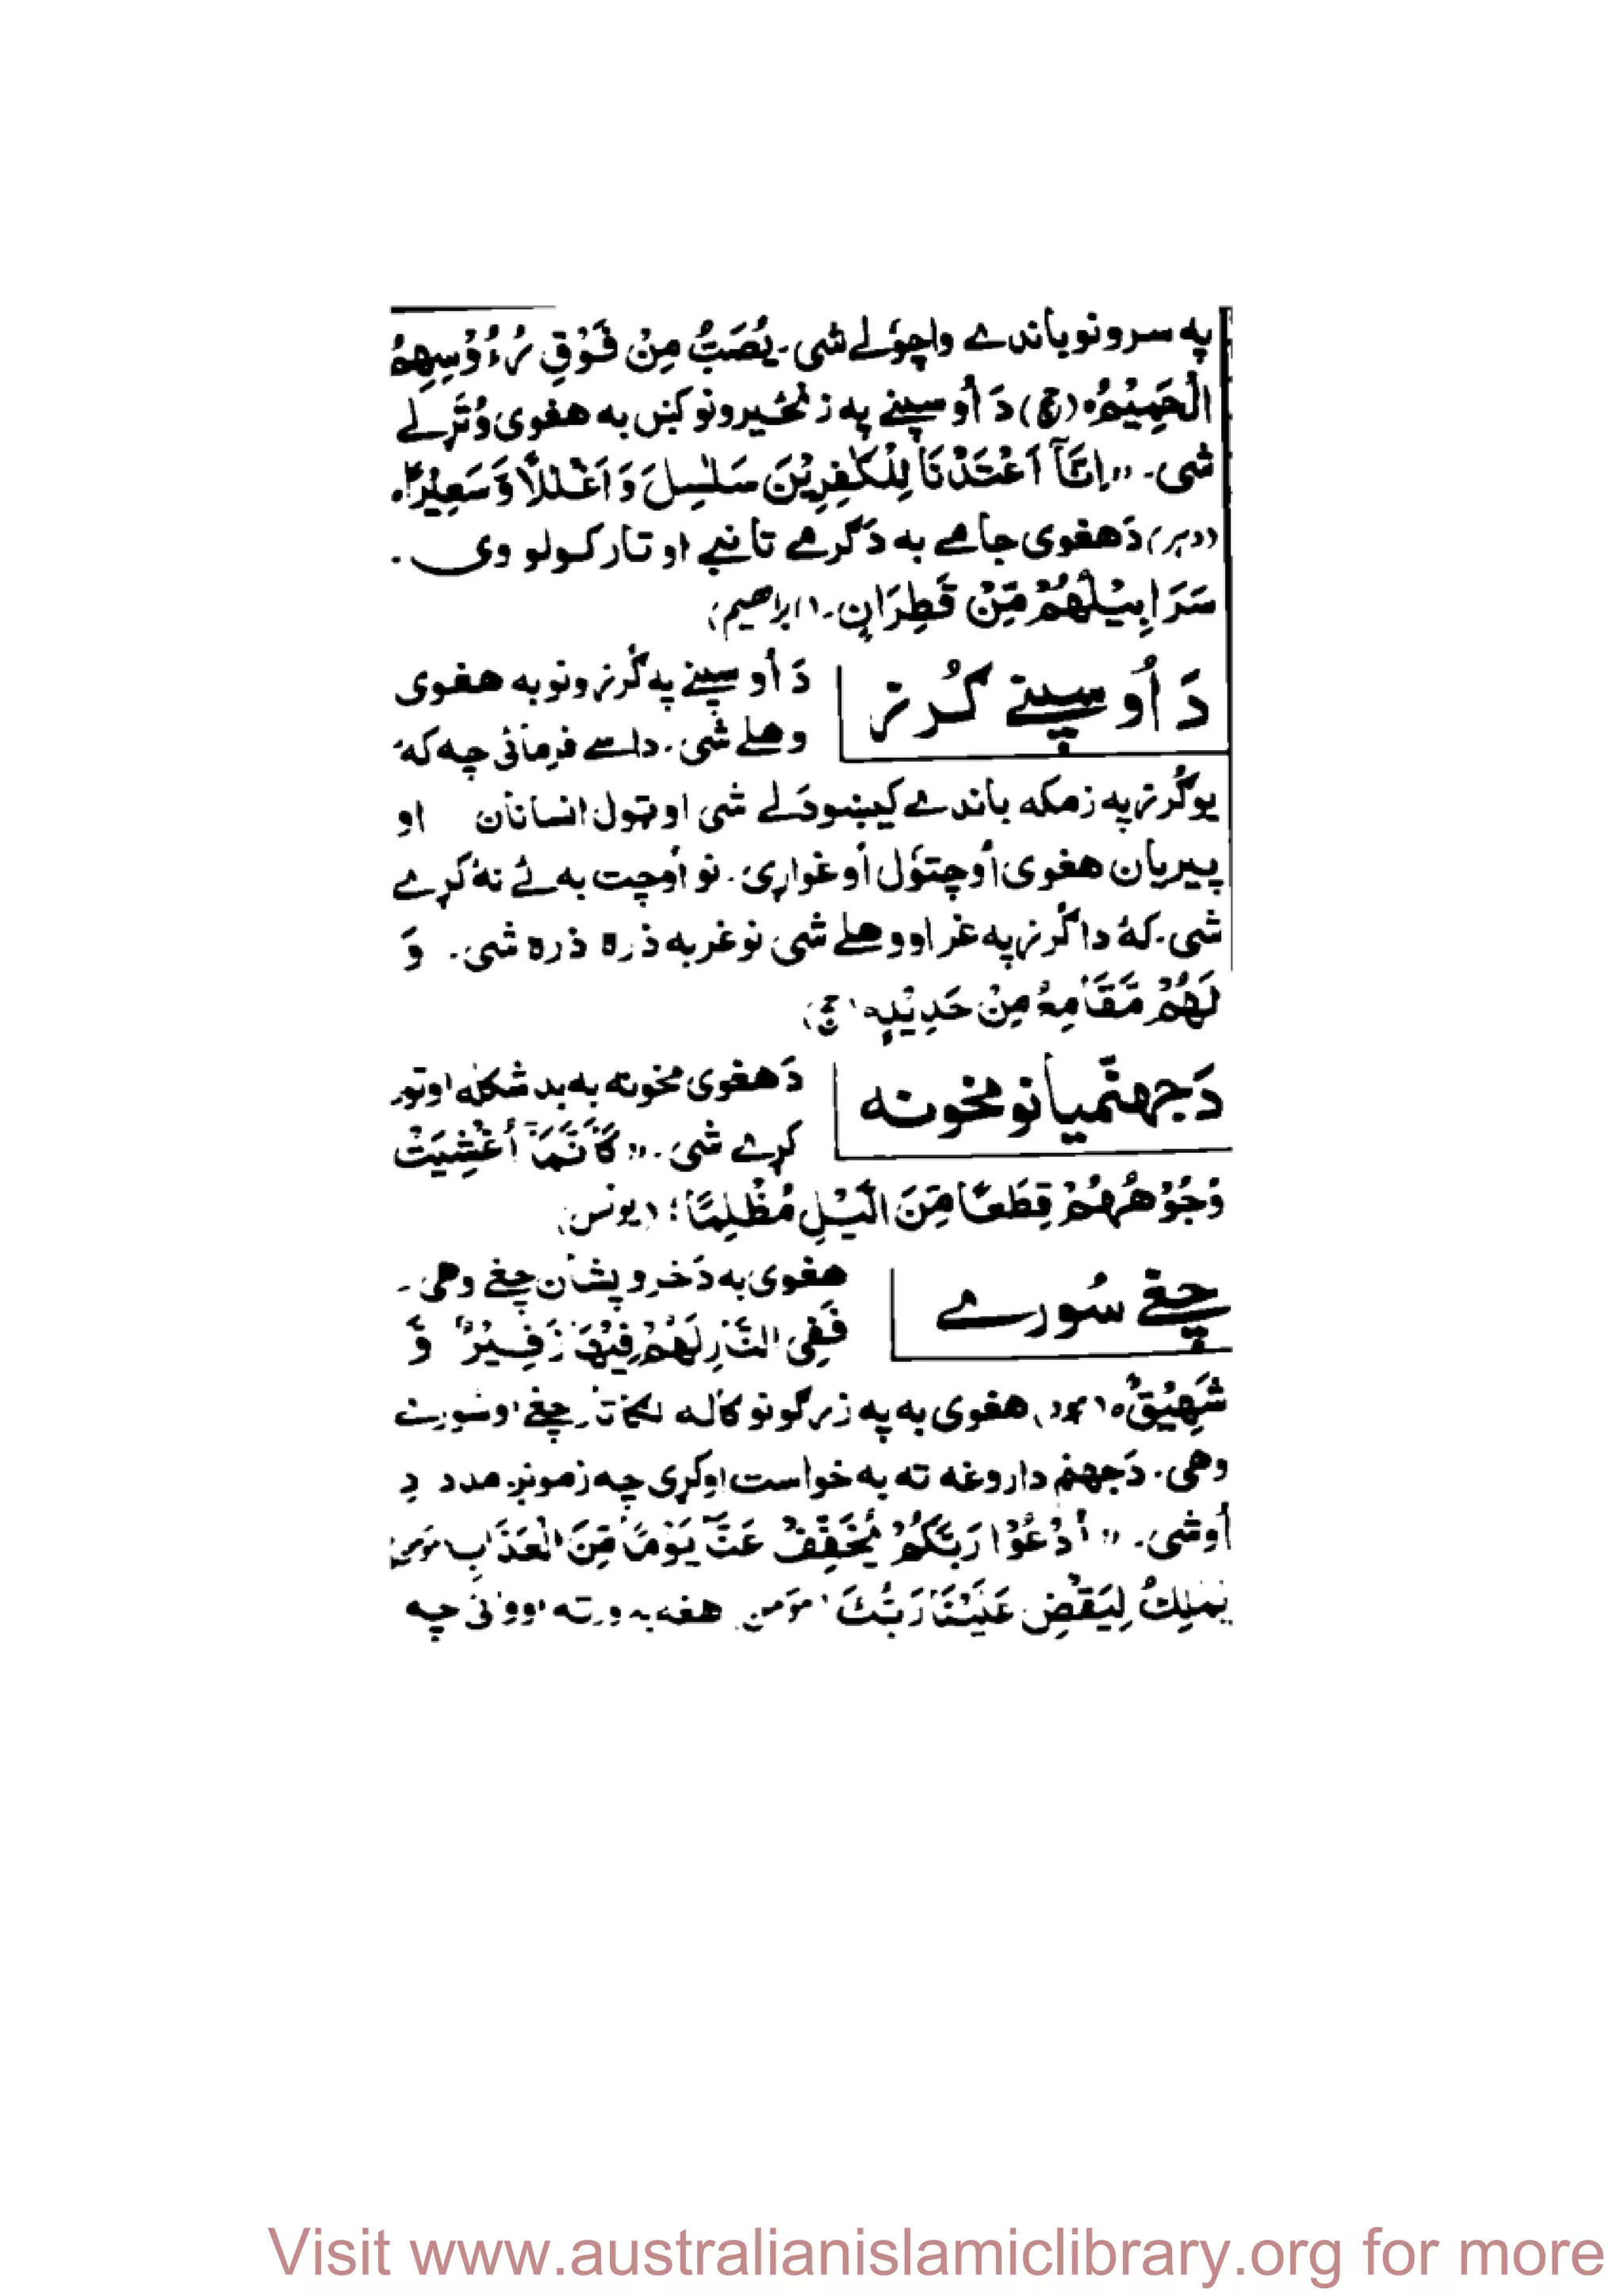 په سرونو باندے واچوَلے شی۔ یُصَبُّ مِنْ فَوْقِ رُءُوْسِهِمُ
الْحَمِیْمُ۰ (حج) دَ اُو سپنے په زنځیرونو کښ به هغوی وُتَړلے
شی۔ ،،اِنَّآ اَعْتَدْنَا لِلْکٰفِرِیْنَ سَلٰسِلَ وَ اَغْلٰلًا وَّ سَعِیْرًا۰
(دهر) دَ هغوی جامے به دَ گرمے تانبے او تارکولو وی۔
سَرَابِیْلُهُمْ مِّنْ قَطِرَانٍ۔ (ابراهیم)
دَ اُو سپنے گُرز
دَ اُو سپنے په گُرزونو به هغوی
وهلے شی۔ داسے فرمائی چه کهٔ
یو گُرز په زمکه باندے کیښودَلے شی او ټول انسانان او
پیریان هغوی اُوچتوَل اُوغواړی۔ نو اُوچت به ئے نهٔ کړے
شی۔ کهٔ دا گُرز په غر اووهلے شی نو غر به ذره ذره شی۔ وَ
لَهُمْ مَّقَامِعُ مِنْ حَدِیْدٍ۰ (حج)
دَ جهنّمیانو مخونه
دَ هغوی مخونه به بد شکله او تور
کړے شی۔ ،،کَاَنَّمَآ اُغْشِیَتْ
وُجُوْهُهُمْ قِطَعًا مِّنَ الَّیْلِ مُظْلِمًا؛ (یونس)
چغے سُورے
هغوی به دَ خرو پشان چغے وهی۔
فَفِی النَّارِ لَهُمْ فِیْهَا زَفِیْرٌ وَّ
شَهِیْقٌ۰ (هود) هغوی به په زرگونو کاله لگاتار چغے او سورے
وهی۔ دَ جهنم داروغه ته به خواست اوکړی چه زمونږ مدد دِ
اُوشی۔ ،،اُدْعُوْا رَبَّکُمْ یُخَفِّفْ عَنَّا یَوْمًا مِّنَ الْعَذَابِ مؤمن
یٰمٰلِکُ لِیَقْضِ عَلَیْنَا رَبُّکَ مؤمن هغه به ورته اووائی چه
Visit www.australianislamiclibrary.org for more